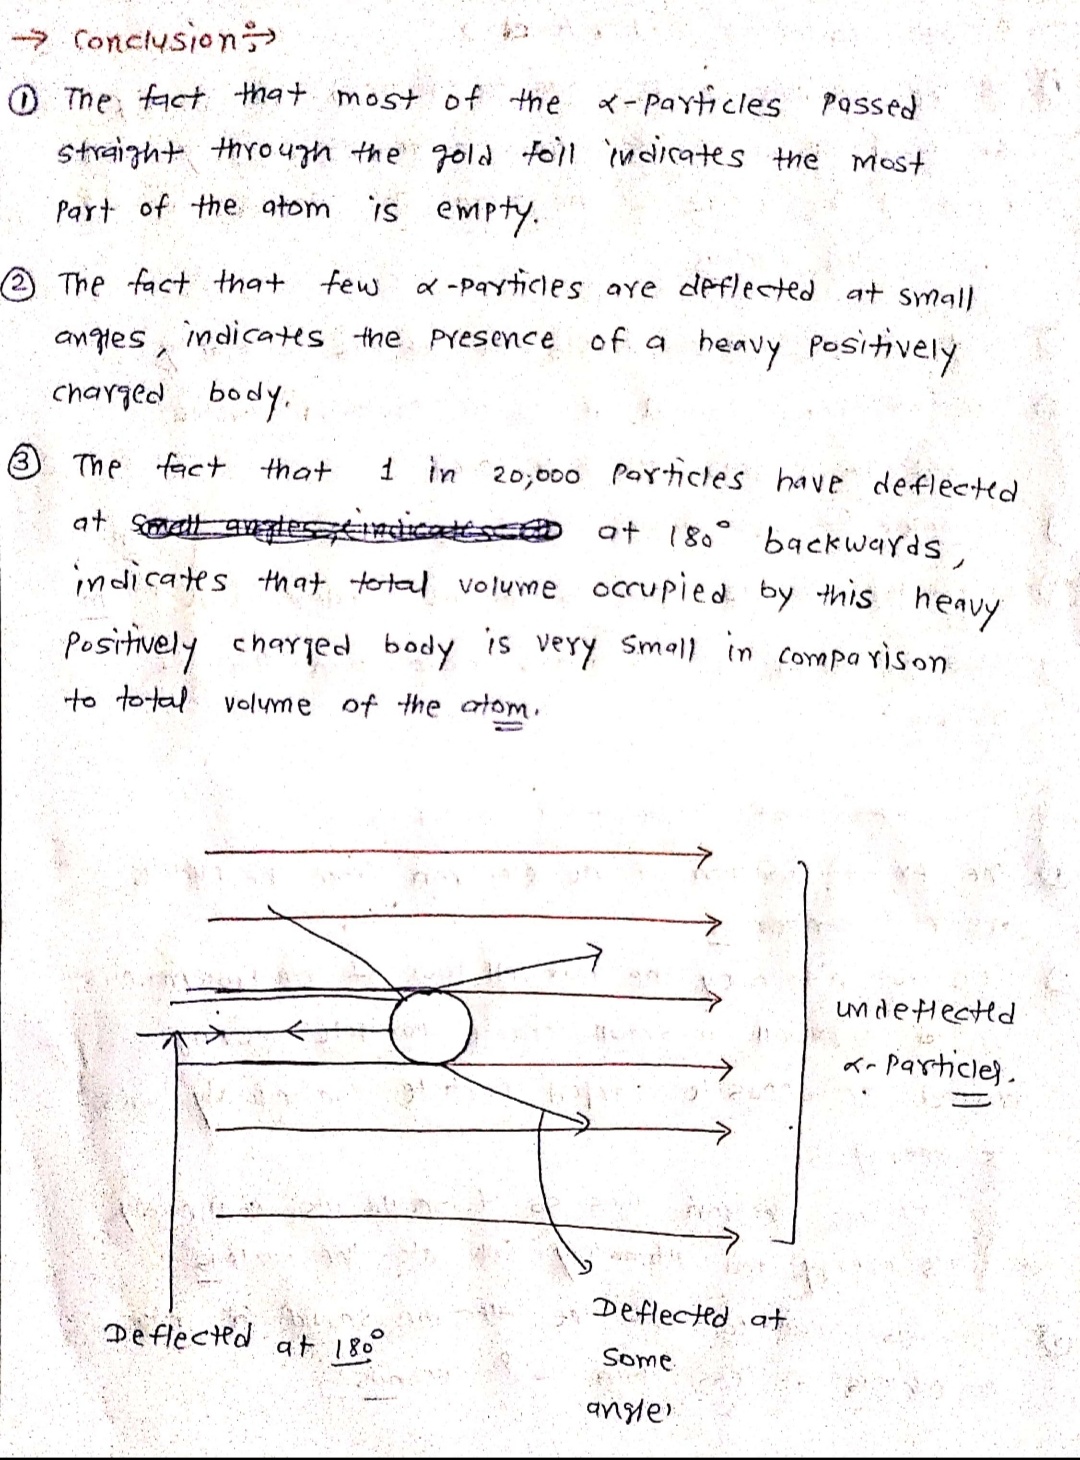 → Conclusion :→
① The fact that most of the α-particles passed
straight through the gold foil indicates the most
part of the atom is empty.
② The fact that few α-particles are deflected at small
angles, indicates the presence of a heavy positively
charged body.
③ The fact that 1 in 20,000 particles have deflected
at small angles, indicates at 180° backwards,
indicates that total volume occupied by this heavy
positively charged body is very small in comparison
to total volume of the atom.
undeflected
α-particles.
Deflected at 180°
Deflected at
some
angle